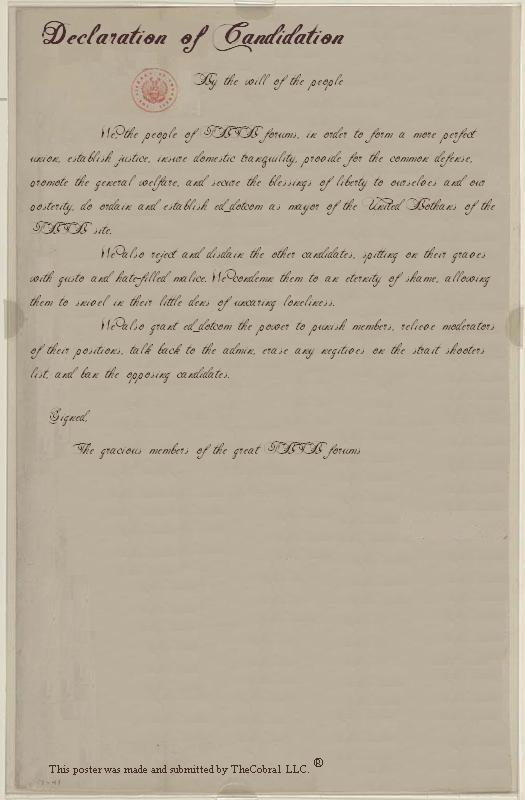 Declaration of Candidation
By the will of the people
We the people of TBTB forums, in order to form a more perfect
union, establish justice, insure domestic tranquility, provide for the common defense,
promote the general welfare, and secure the blessings of liberty to ourselves and our
posterity, do ordain and establish ed_dotcom as mayor of the United Bothans of the
TBTB site.
We also reject and disdain the other candidates, spitting on their graves
with gusto and hate-filled malice. We condemn them to an eternity of shame, allowing
them to snivel in their little dens of uncaring loneliness.
We also grant ed_dotcom the power to punish members, relieve moderators
of their positions, talk back to the admin, erase any negitives on the strait shooters
list, and ban the opposing candidates.
Signed,
The gracious members of the great TBTB forums
This poster was made and submitted by TheCobral LLC. ®